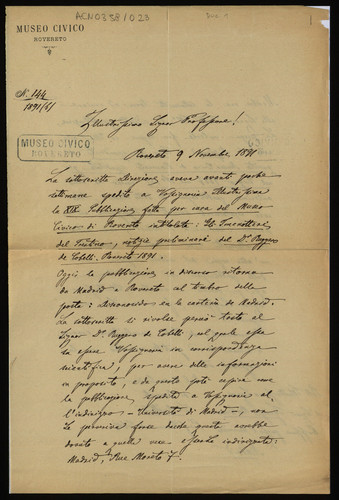 ACN0338/023
MUSEO CIVICO
ROVERETO
N. 144
1891(6)
Illustrissimo Signor Professore!
MUSEO CIVICO
ROVERETO
Rovereto 9 Novembre 1891
La sottoscritta Direzione aveva avanti poche
settimane spedito a Vossignoria Illustrissima
la XIX Pubblicazione fatta per cura del Museo
Civico di Rovereto intitolata:
del Trentino, notizie preliminari del Dr. Ruggero
de Cobelli. Rovereto 1891.
Oggi la pubblicazione in discorso ritorna
da Madrid a Rovereto col timbro della
posta: Desconocido en la cartería de Madrid.
La sottoscritta si rivolse
Signor Dr. Ruggero de Cobelli, il quale
Vossignoria in corrispondenza
scientifica, per avere delle informazioni
in proposito, e da questo potè capire come
la pubblicazione spedita a Vossignoria
l'indirizzo - Università di Madrid -, non
Le pervenne forse perchè questo avrebbe
dovuto a quella vece essere indirizzato:
Madrid, Rue Moreto 7.